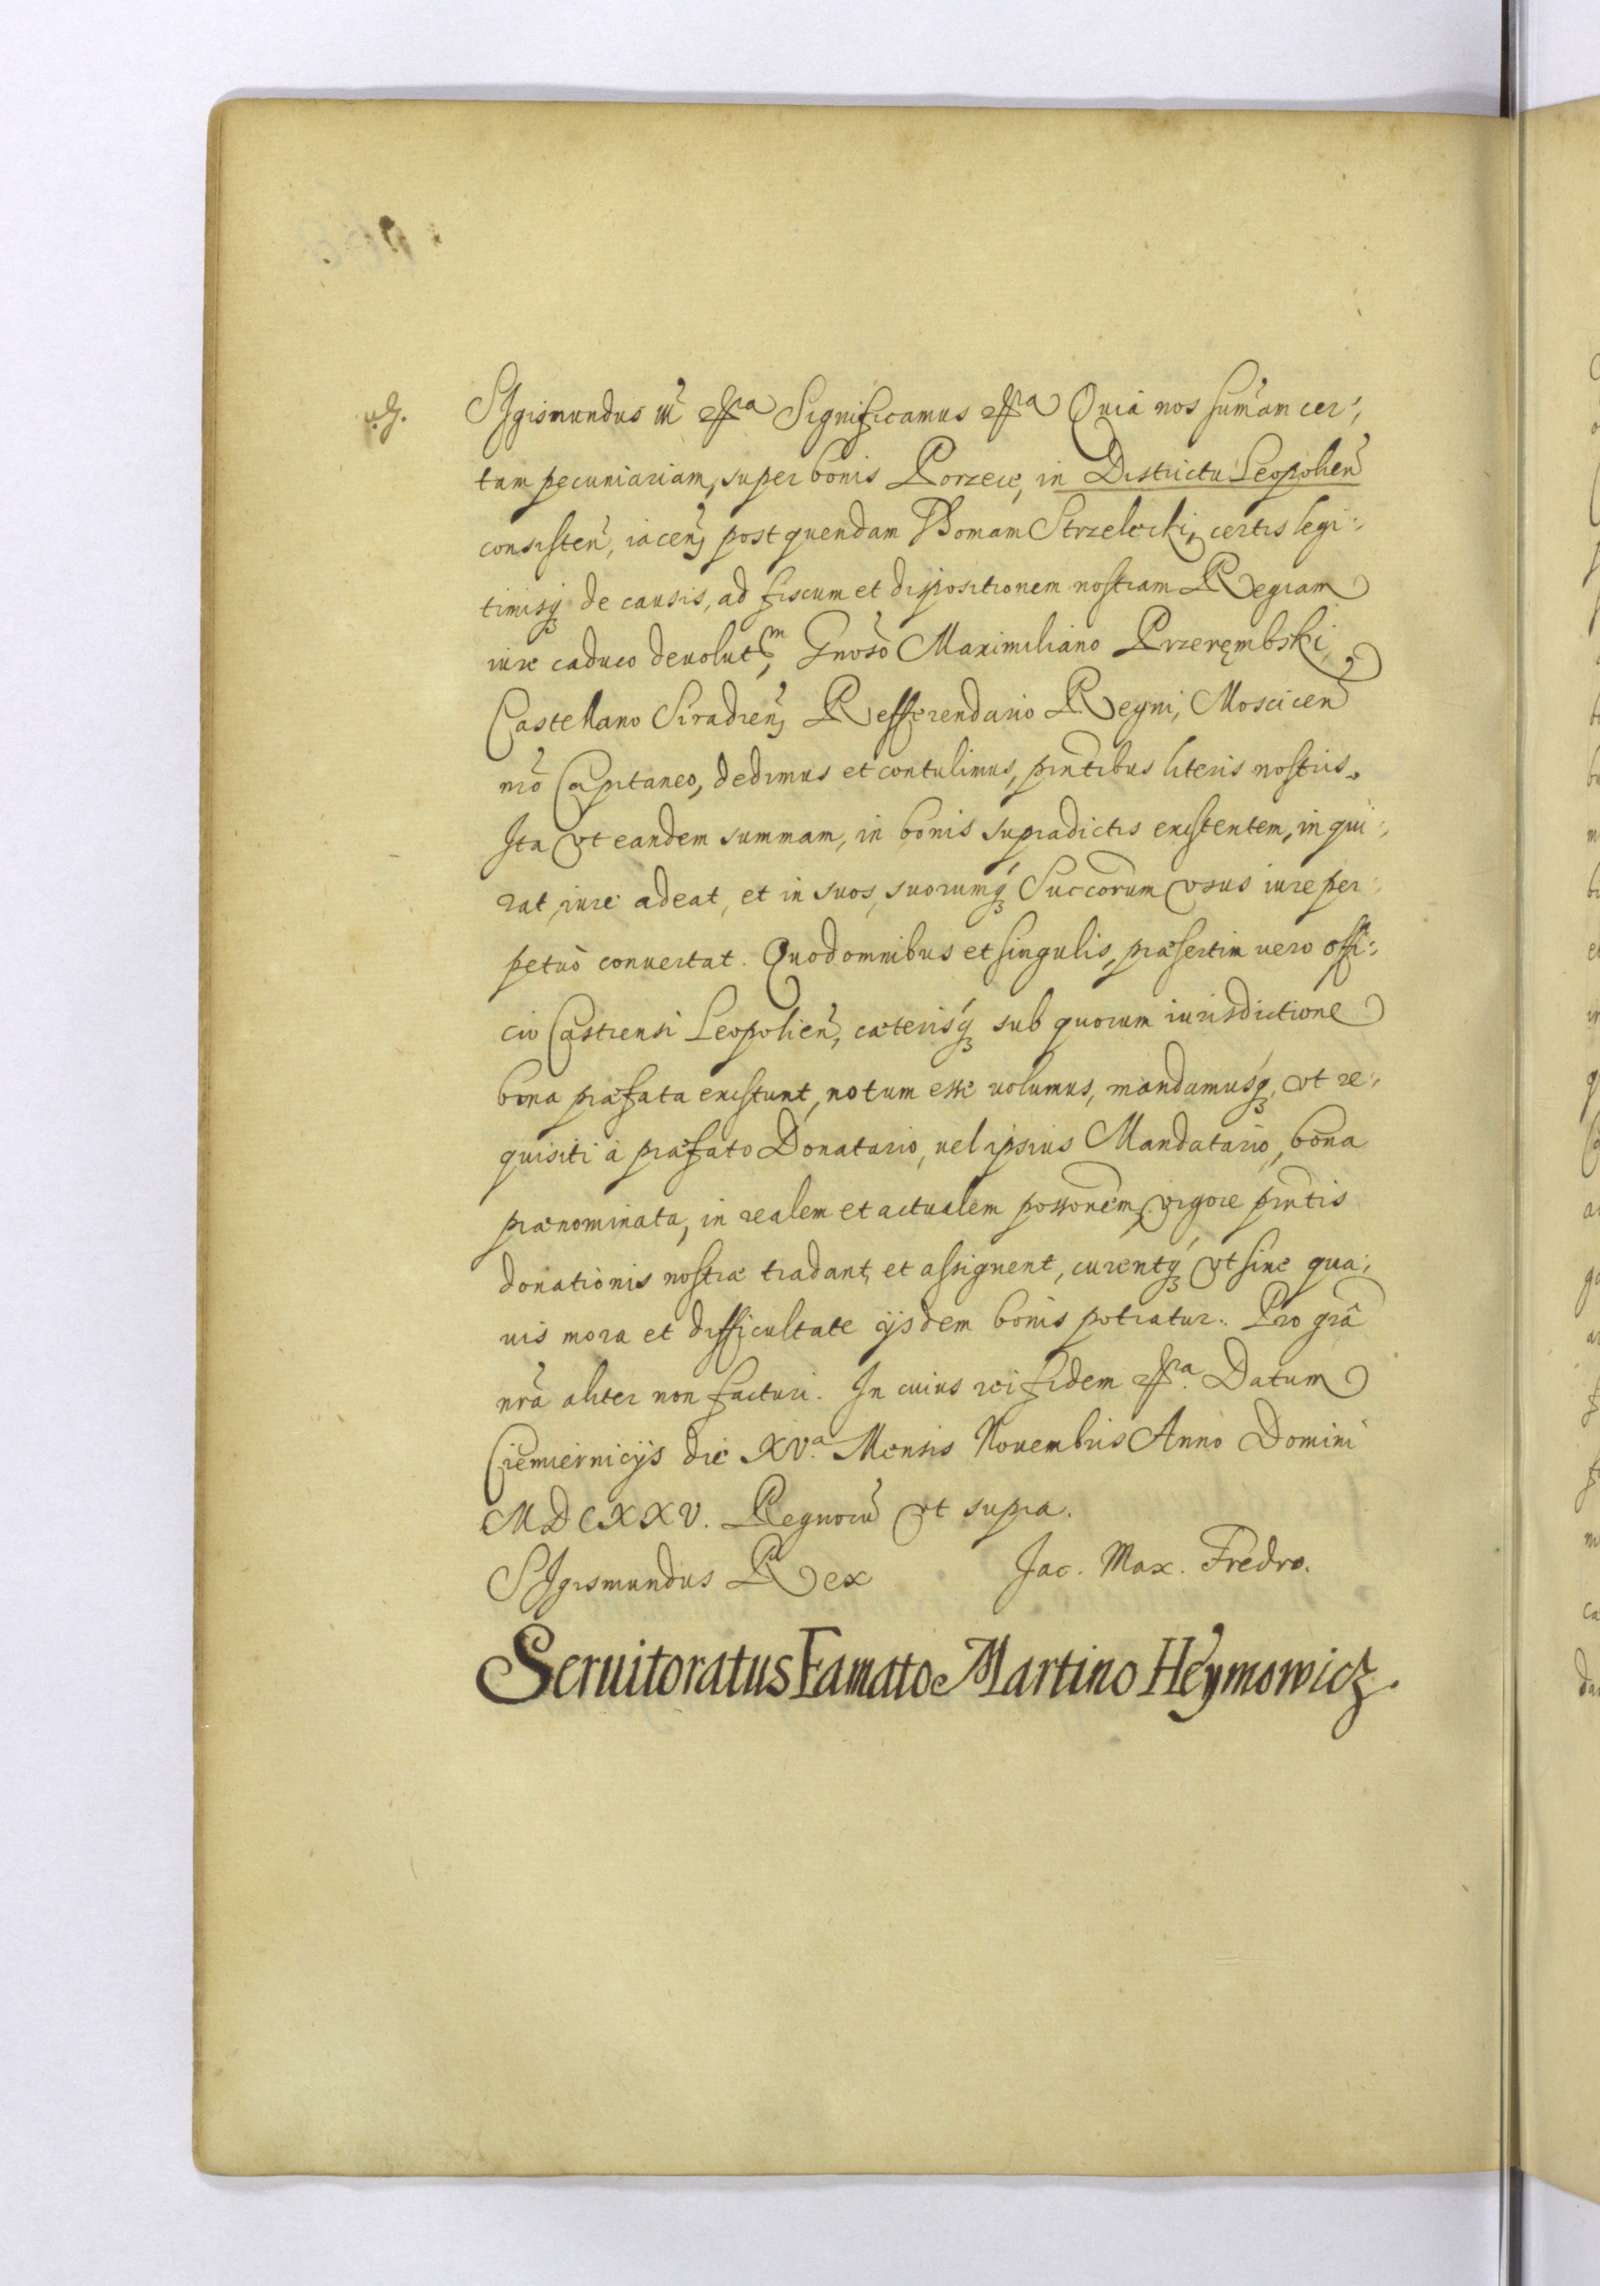 SIgismundus III etcra Significamus etcra Quia nos sum̃am cer:
tam pecuniariam, super bonis Porzecė, in Districtu Leopolien̄
consisten̄, iacen̄, post quendam Thomam Strzelecki, certis legi:
timisq; de causis, ad fiscum et dispositionem nostram Regiam
iure caduco deuolutm, Gnoso Maximiliano Przerębski,
Castellano Siradien̄, Refferendario Regni, Moscicen̄
nro Capitaneo, dedimus et contulimus, pntibus literis nostris.
Ita vt eandem summam, in bonis supradictis existentem, inqui:
rat, iure adeat, et in suos, suorumq; Succorum vsus iure per:
petuò conuertat. Quod omnibus et singulis, præsertim vero offi:
cio Castrensi Leopolien̄, cæterisq; sub quorum iurisdictione
bona præfata existunt, notum esse uolumus, mandamusq; vt re:
quisiti à præfato Donatario, uel ipsius Mandatario, bona
prænominata, in realem et actualem possonem, vigore pntis
donationis nostræ tradant, et assignent, curentq; vt sine qua:
uis mora et difficultate ijsdem bonis potiatur. Pro grã
nrã aliter non facturi. In cuius rei fidem etcra. Datum
Ciemiernicijs die XVa. Mensis Nouembris Anno Domini
MDCXXV. Regnorũ vt supra.
SIgismundus Rex Jac. Max. Fredro.
Seruitoratus Famato Martino Heymowicz.